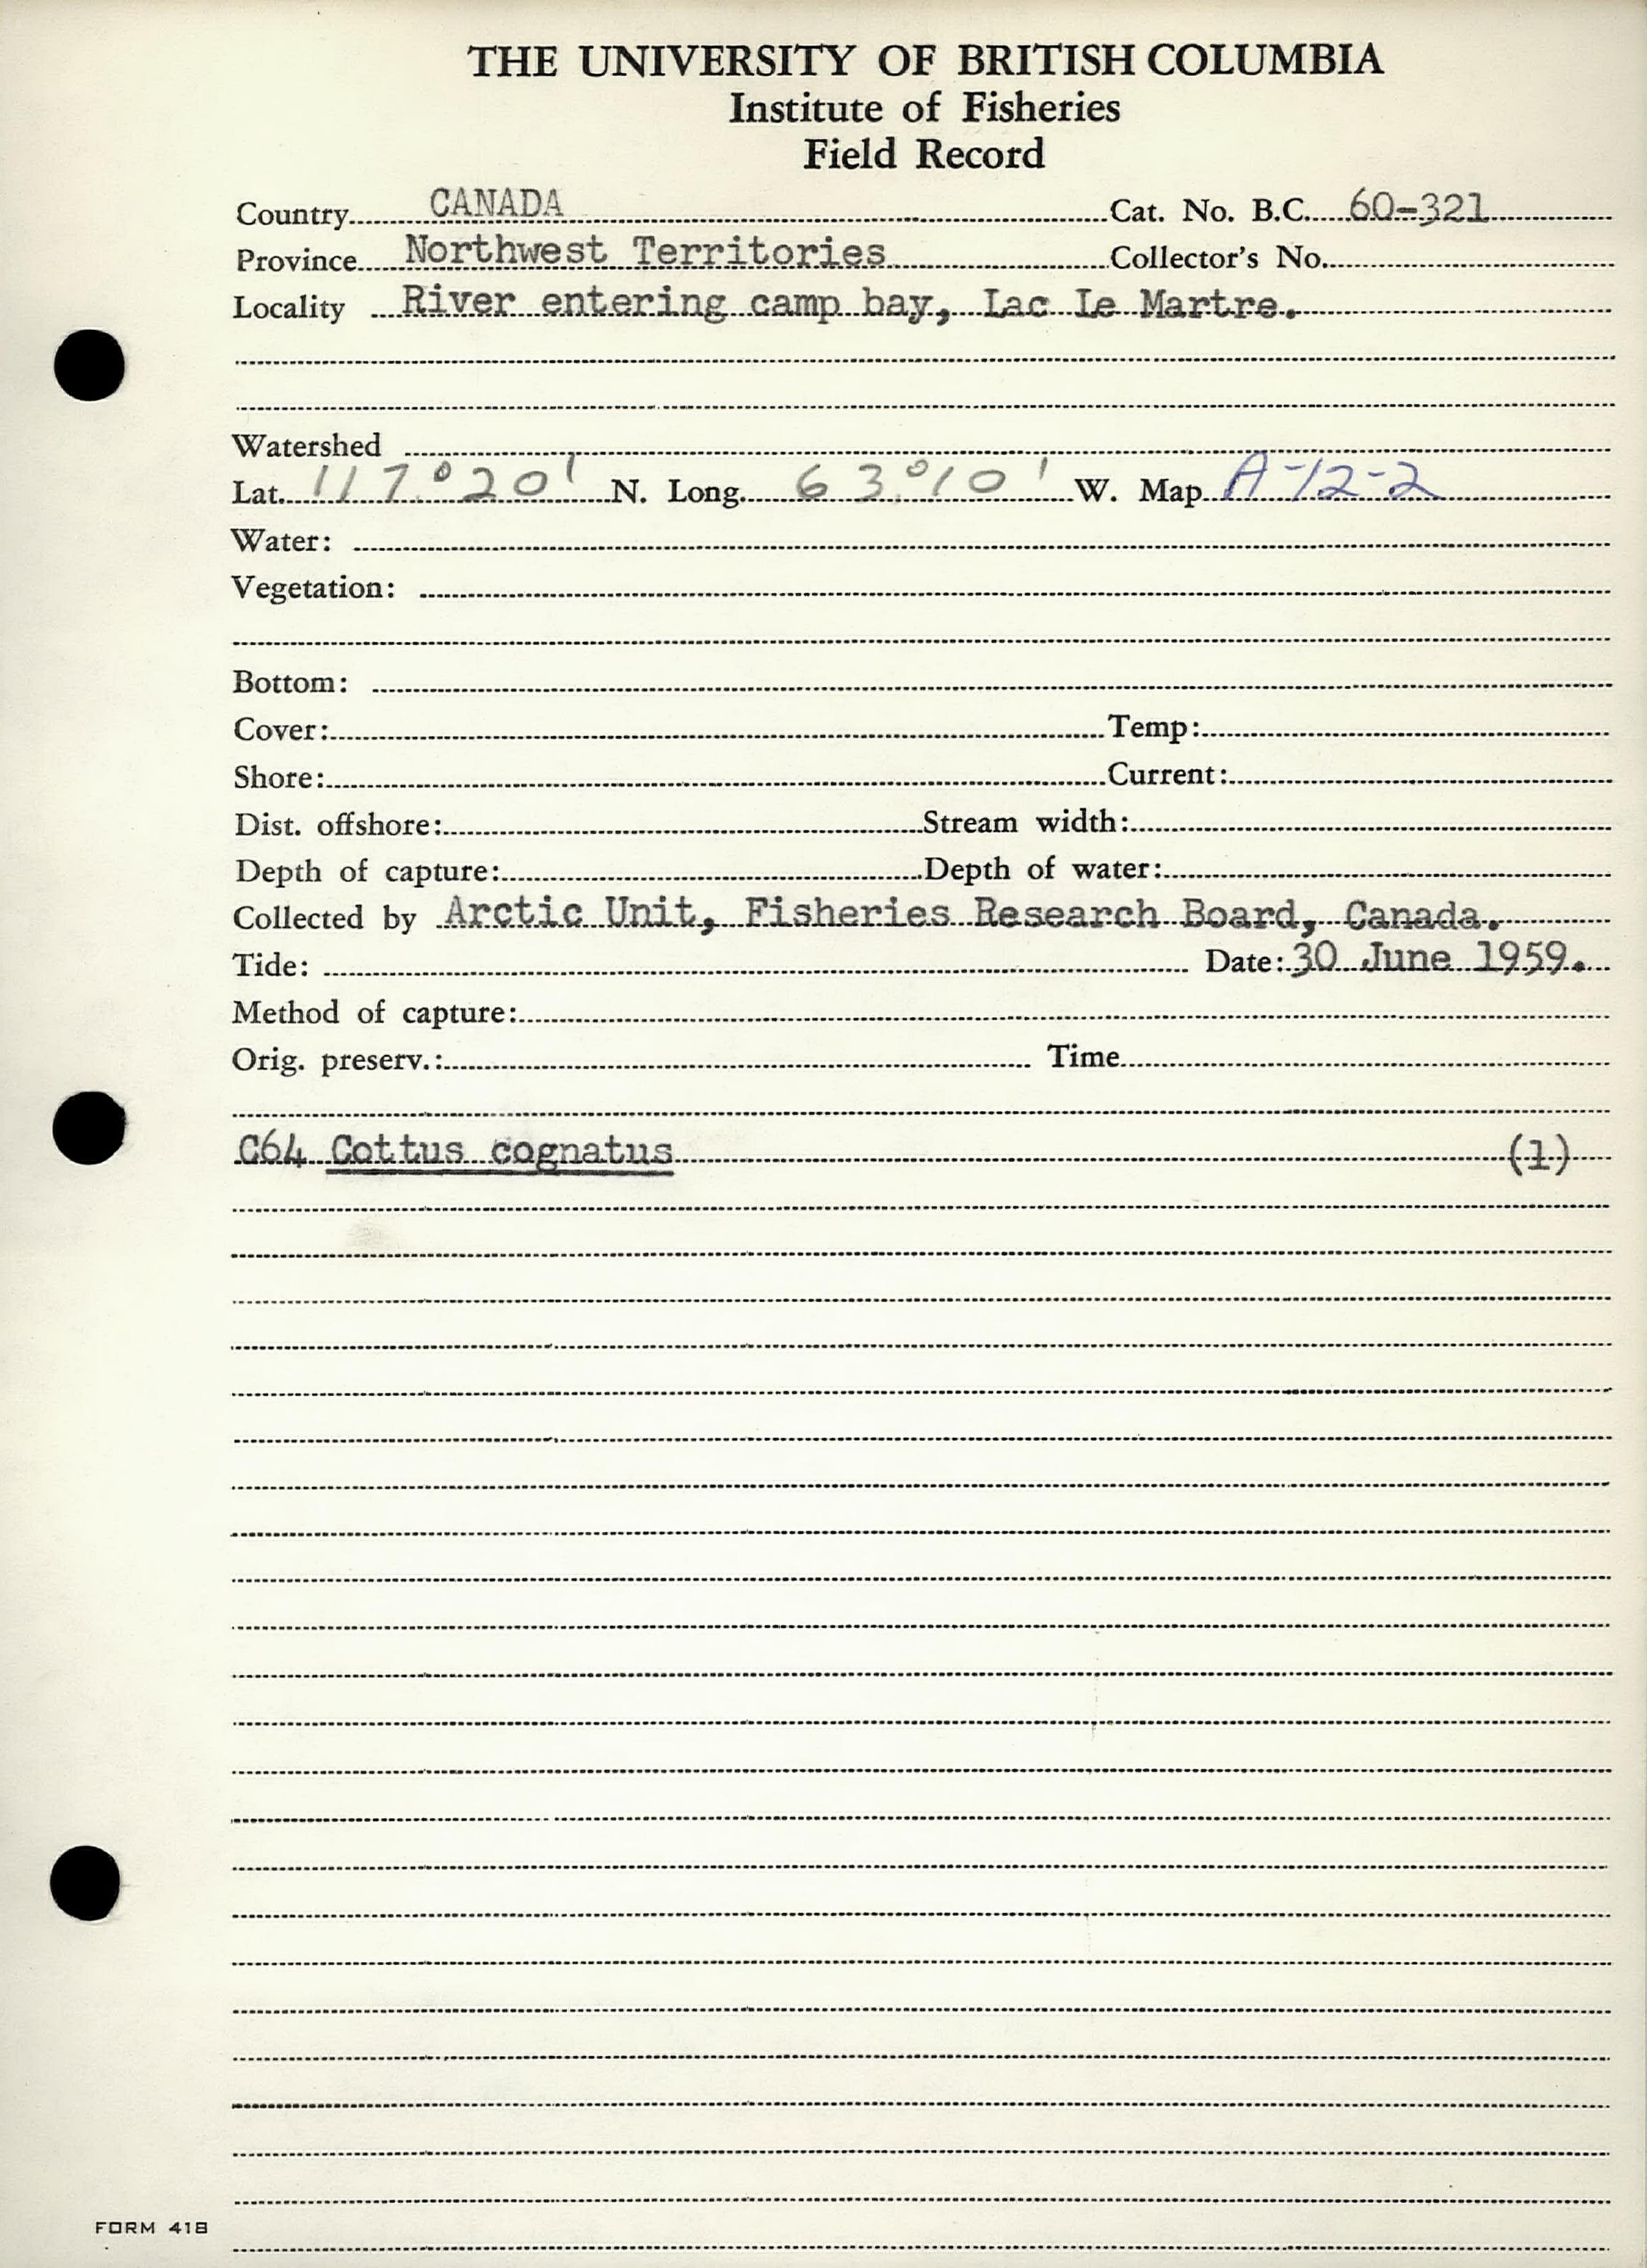 THE UNIVERSITY OF BRITISH COLUMBIA
Institute of Fisheries
Field Record
Country CANADA Cat. No. B.C. 60-321
Province Northwest Territories Collector's No.
Locality River entering camp bay, Lac Le Martre.
Watershed
Lat. 117°20' N. Long. 63°10' W. Map A-12-2
Water:
Vegetation:
Bottom:
Cover: Temp:
Shore: Current:
Dist. offshore: Stream width:
Depth of capture: Depth of water:
Collected by Arctic Unit, Fisheries Research Board, Canada.
Tide: Date: 30 June 1959.
Method of capture:
Orig. preserv.: Time
C64 Cottus cognatus (1)
FORM 418